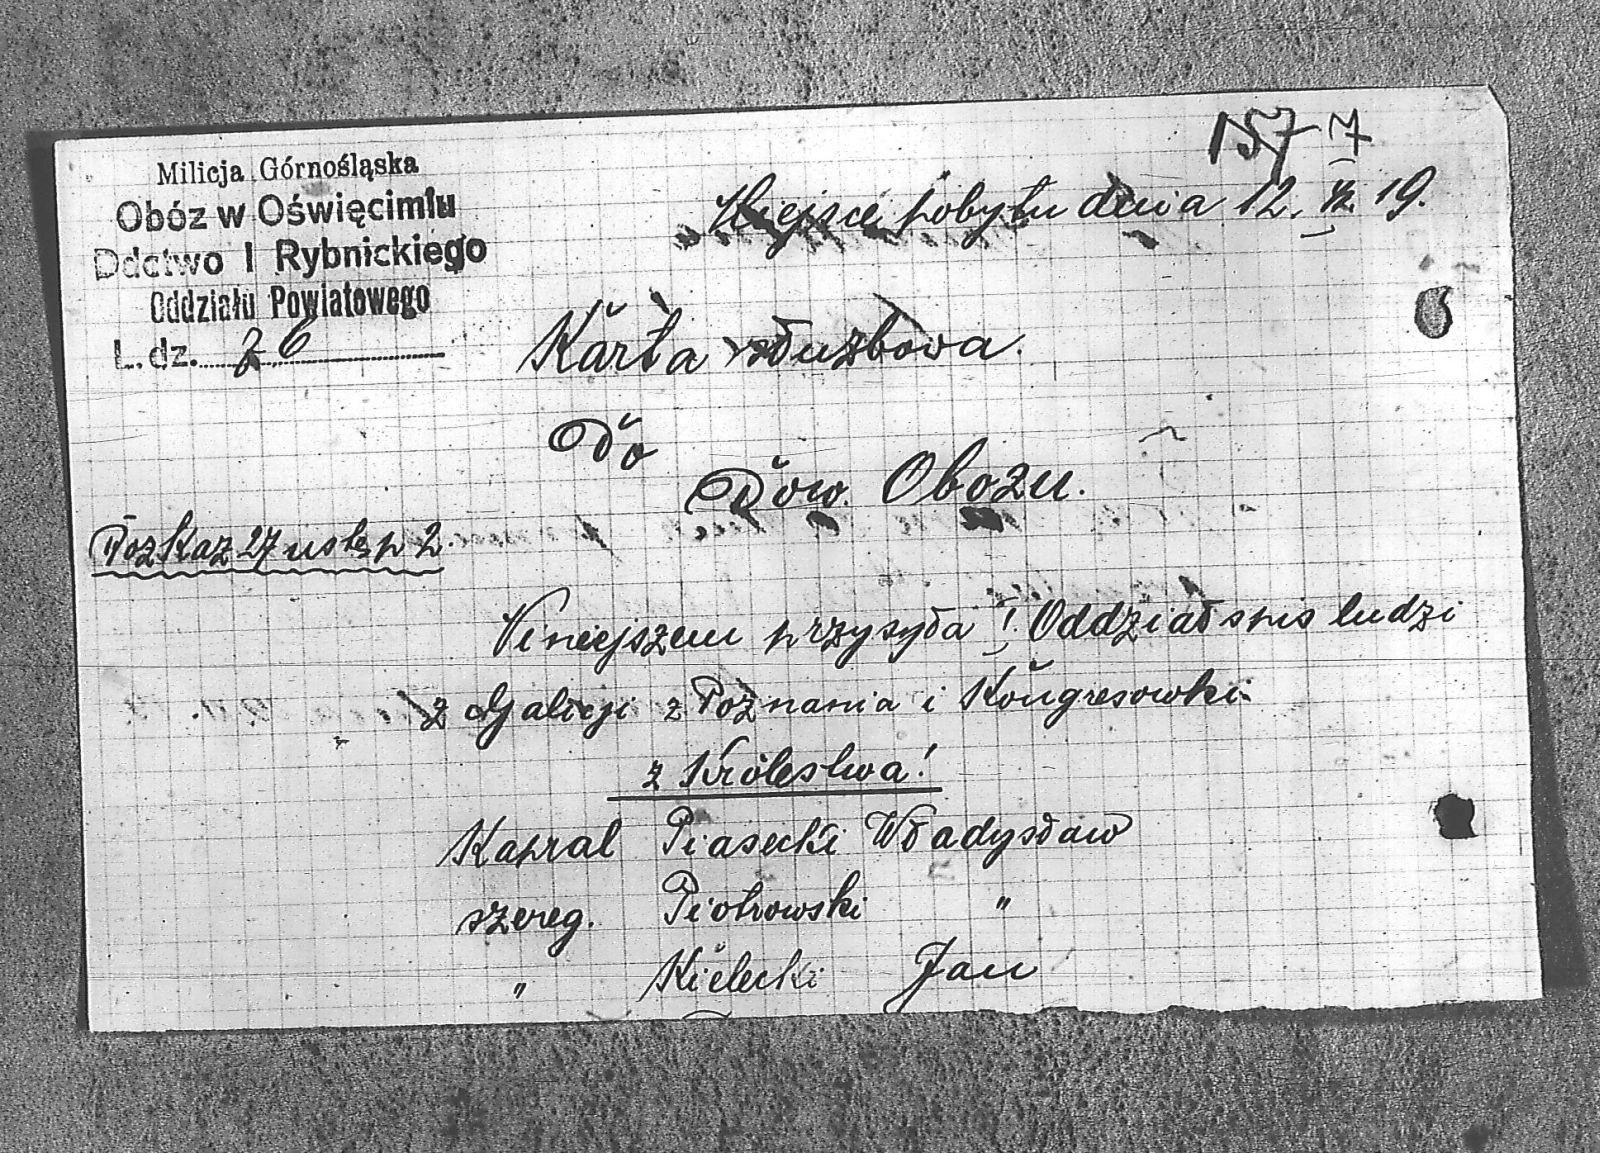 157 7
Milicja Górnośląska
Obóz w Oświęcimiu
Ddctwo I Rybnickiego
Oddziału Powiatowego
L. dz. 26
Miejsce pobytu dnia 12. 19.
Karta służbowa.
Do
Dow. Obozu.
Rozkaz 27 ustęp 2.
Niniejszem przysyła I. Oddział spis ludzi
z Galicji z Poznania i Kongresowki
z Królestwa!
Kapral Piasecki Władysław
szereg. Piotrowski "
" Kielecki Jan